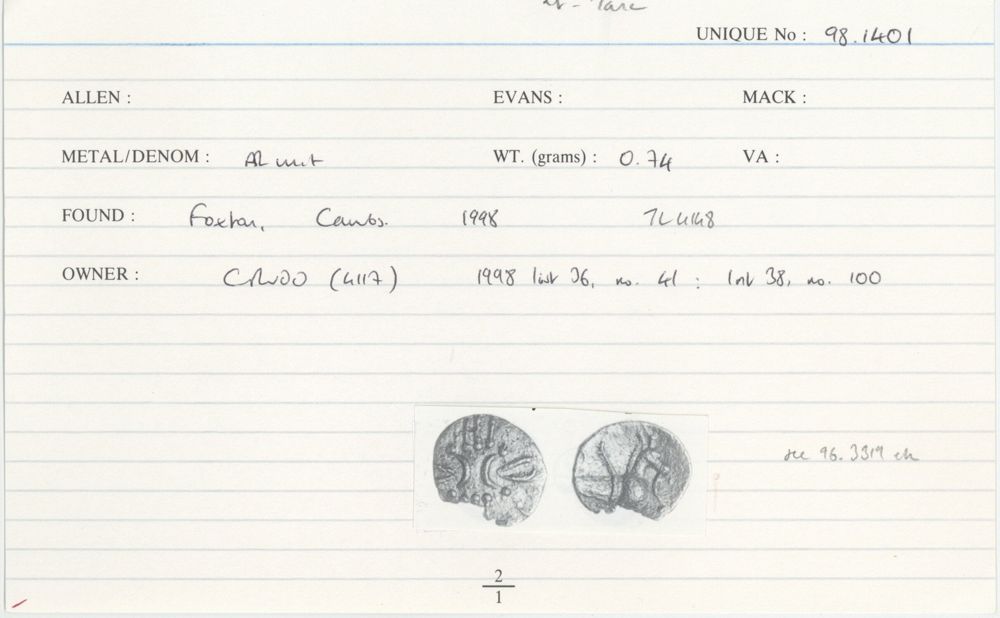 UNIQUE No : 98.1401
ALLEN : EVANS : MACK :
METAL/DENOM : AR unit WT. (grams) : 0.74 VA :
FOUND : Foxton, Cambs. 1998 TL 4148
OWNER : (4117) 1998 list 36, no. 41 : list 38, no. 100
see 96.3319 etc
2
1